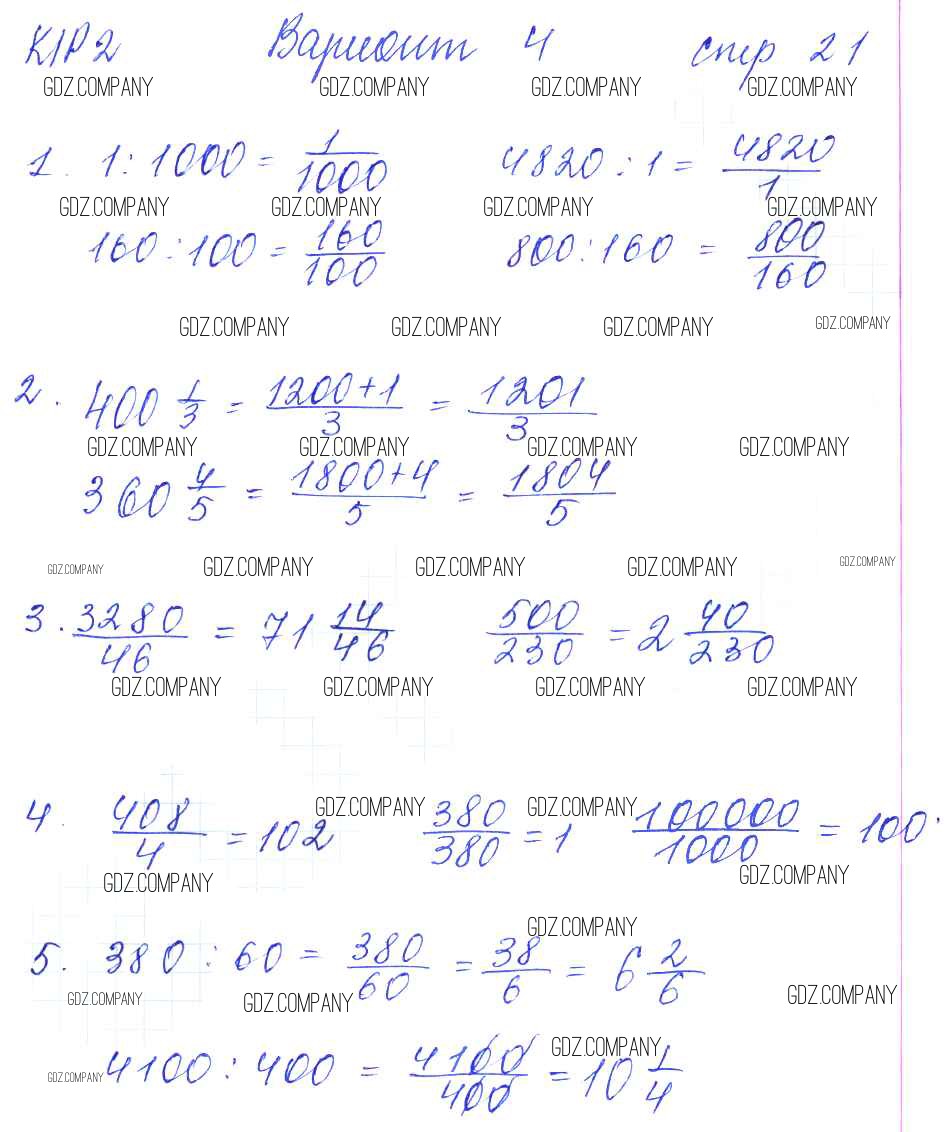 К/Р 2 Вариант 4 стр 21
GDZ.COMPANY GDZ.COMPANY GDZ.COMPANY GDZ.COMPANY
1. 1 : 1000 = 1/1000 4820 : 1 = 4820/1
GDZ.COMPANY GDZ.COMPANY GDZ.COMPANY GDZ.COMPANY
160 : 100 = 160/100 800 : 160 = 800/160
GDZ.COMPANY GDZ.COMPANY GDZ.COMPANY GDZ.COMPANY
2. 400 1/3 = 1200+1/3 = 1201/3
GDZ.COMPANY GDZ.COMPANY GDZ.COMPANY GDZ.COMPANY
360 4/5 = 1800+4/5 = 1804/5
GDZ.COMPANY GDZ.COMPANY GDZ.COMPANY GDZ.COMPANY GDZ.COMPANY
3. 3280/46 = 71 14/46 500/230 = 2 40/230
GDZ.COMPANY GDZ.COMPANY GDZ.COMPANY GDZ.COMPANY
GDZ.COMPANY GDZ.COMPANY
4. 408/4 = 102 380/380 = 1 100000/1000 = 100
GDZ.COMPANY GDZ.COMPANY
GDZ.COMPANY
5. 380 : 60 = 380/60 = 38/6 = 6 2/6
GDZ.COMPANY GDZ.COMPANY GDZ.COMPANY
GDZ.COMPANY
GDZ.COMPANY 4100 : 400 = 4100/400 = 10 1/4